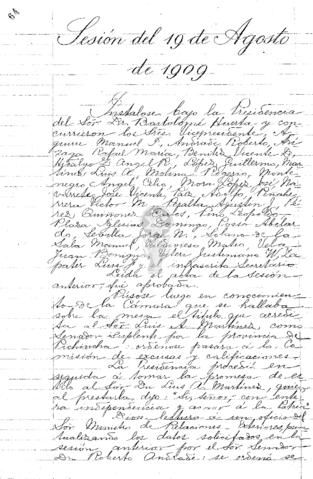 64
Sesión del 19 de Agosto
de 1909
Instálase bajo la Presidencia
del Sor Dr. Bartolomé Huerta y con-
currieron los Sres. Vicepresidente, A-
guirre Manuel J, Andrade Roberto, Ar-
Rafael María, Benítez Vicente D,
Hidalgo G. Angel R, López Guillermo, Mar-
tínez Luis A, Molina Rogerio, Monte-
negro Angel Celio, Mora López José, Na-
José Vicente, Páez Adolfo, Peña-
herrera Víctor M, Peralta Agustín J, Pé-
rez Quiñones Carlos, Pino Leopoldo,
Plaza, Domingo,
M, Lozano de la
Sala Manuel, Mateo, Vela
Juan Benigno, Justiniano W,
Luis E, infrascrito Secretario
Leída el acta de la sesión
anterior fué aprobada.
Púsose luego en conocimien-
to de la Cámara que se hallaba
sobre la mesa el título que acredi-
ta al Sor Luis A. Martínez, como
Senador Suplente por la provincia de
Pichincha: ordenóse pasara á la Co-
misión de excusas y calificaciones.
La Presidencia procedió en-
seguida á tomar la promesa de es-
tilo al Sor Dn Luis A. Martínez, quien
al prestarla, dijo: "Sí, señor, con ente-
ra independencia y amor á la Patria"
Dióse lectura á un oficio del
Sor Ministro de Relaciones Exteriores, pun-
tualizando los datos solicitados en la
sesión anterior por el Sor Senador
Dr. Roberto Andrade: se ordenó se